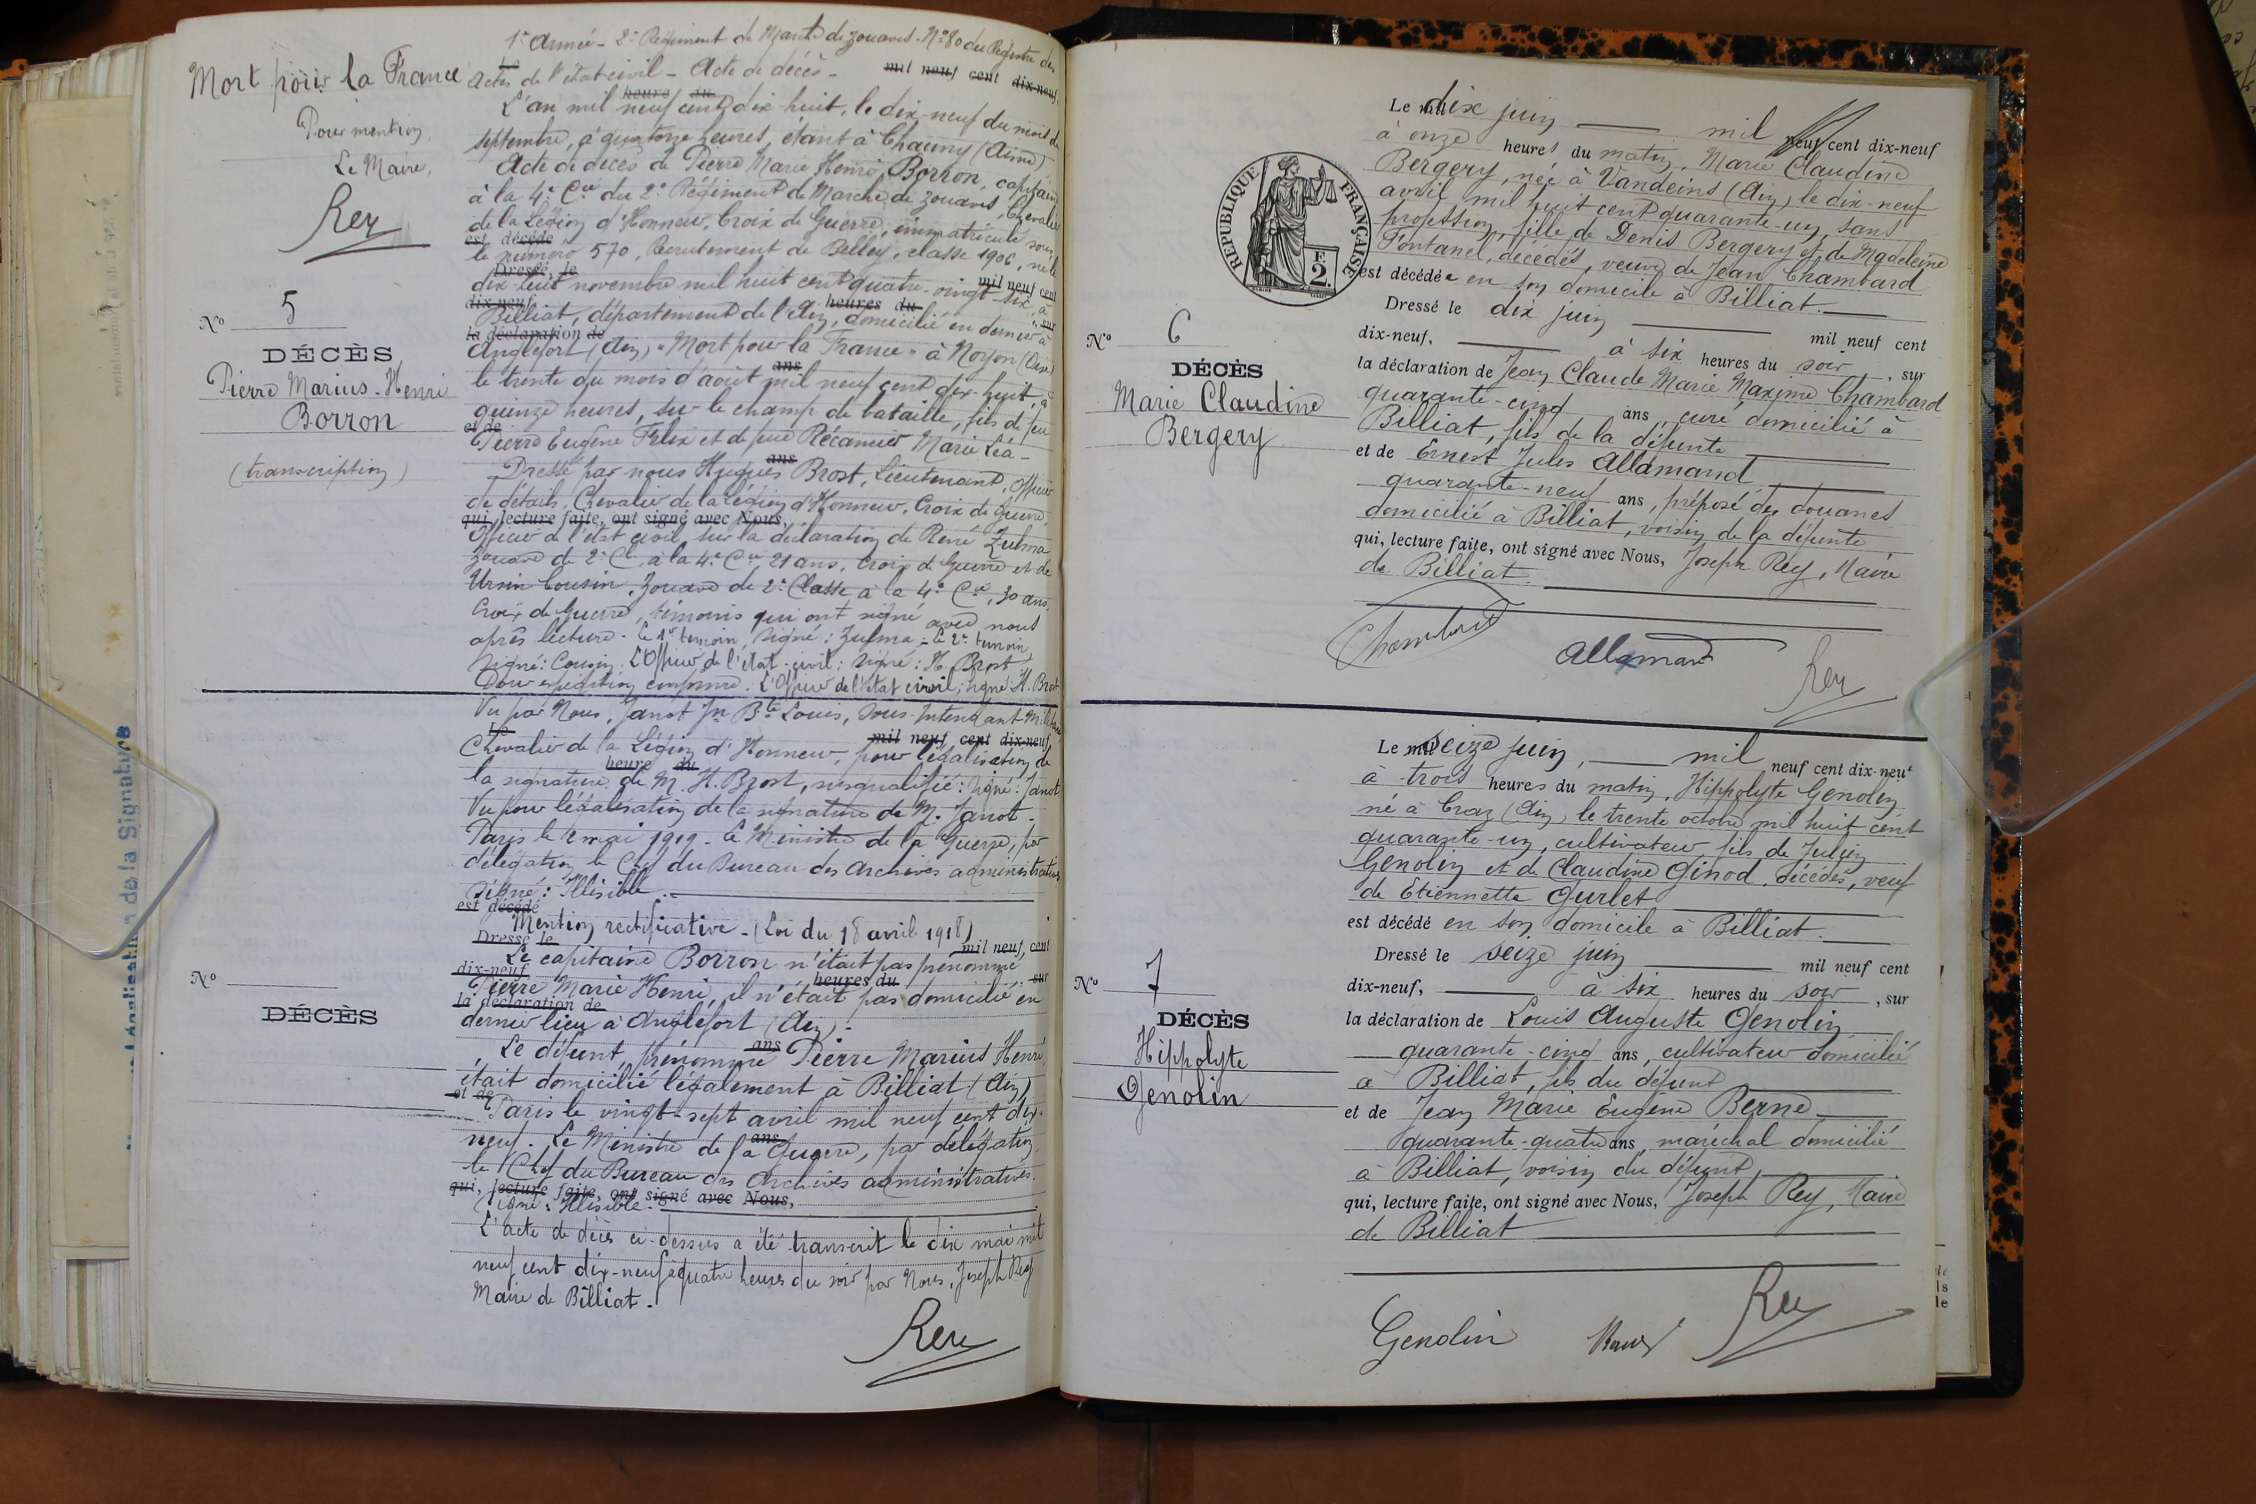 Mort pour la France
Pour mention,
Le Maire,
Rey
N° 5
DÉCÈS
Pierre Marius-Henri
Borron
(transcription)
1re Armée - 2e Régiment de Marche de zouaves. N° 80 du Registre des
Actes de l'état-civil - Acte de décès -
Le mil neuf cent dix-neuf,
heure du
L'an mil neuf cent dix-huit, le dix-neuf du mois de
septembre, à quatorze heures, étant à Chauny (Aisne)
Acte de décès de Pierre Marie Henri Borron, capitaine
à la 4e Cie du 2e Régiment de Marche de zouaves, Chevalier
de la Légion d'Honneur, Croix de Guerre, immatriculé sous
est décédé
le numéro 570, Recrutement de Belley, classe 1906, né le
Dressé, le mil neuf cent
dix-huit novembre mil huit cent quatre-vingt-six, à
dix-neuf, heures du , sur
Billiat, département de l'Ain, domicilié en dernier à
la déclaration de
Anglefort (Ain) "Mort pour la France" à Noyon (Oise)
ans
le trente du mois d'août mil neuf cent dix-huit, à
quinze heures, sur le champ de bataille, fils de feu
et de
Pierre Eugène Félix et de feue Récamier Marie Léa -
ans
Dressé par nous Hugues Brost, Lieutenant, Officier
de détails, Chevalier de la Légion d'Honneur, Croix de guerre,
qui, lecture faite, ont signé avec Nous,
Officier de l'état civil, sur la déclaration de René Zulma
zouave de 2e Cl. à la 4e Cie, 21 ans, Croix de Guerre et de
Ursin Cousin, Zouave de 2e Classe à la 4e Cie, 30 ans,
Croix de Guerre, témoins qui ont signé avec nous
après lecture. Le 1er témoin, signé : Zulma - Le 2e témoin,
signé : Cousin. L'Officier de l'état-civil : signé : H. Brost
Pour expédition conforme. L'Officier de l'état civil, signé : H. Brost
Vu par Nous, Janot Jn Bte Louis, Sous-Intendant Militaire
Le mil neuf cent dix-neuf,
Chevalier de la Légion d'Honneur, pour légalisation de
heure du
la signature de M. H. Brost, susqualifié : Signé : Janot
Vu pour légalisation de la signature de M. Janot -
Paris le 2 mai 1919 - Le Ministre de la Guerre, par
délégation le Chef du Bureau des Archives administratives
Signé : Illisible.
est décédé
Mention rectificative - (Loi du 18 avril 1918)
Dressé le mil neuf cent
Le capitaine Borron n'était pas prénommé
dix-neuf heures du , sur
Pierre Marie Henri, il n'était pas domicilié en
la déclaration de
dernier lieu à Anglefort (Ain) -
ans
Le défunt, prénommé Pierre Marius Henri
était domicilié légalement à Billiat (Ain)
et de
Paris le vingt-sept avril mil neuf cent dix-
ans
neuf. Le Ministre de la Guerre, par délégation
le Chef du Bureau des Archives administratives.
qui, lecture faite, ont signé avec Nous,
Signé : Illisible.
L'acte de décès ci-dessus a été transcrit le dix mai mil
neuf cent dix-neuf à quatre heures du soir par Nous, Joseph Rey
Maire de Billiat.
Rey
N°
DÉCÈS
Légalisation de la Signature
REPUBLIQUE FRANÇAISE
2.
N° 6
DÉCÈS
Marie Claudine
Bergery
Le mil dix juin mil neuf cent dix-neuf
à onze heures du matin, Marie Claudine
Bergery, née à Vandeins (Ain), le dix-neuf
avril mil huit cent quarante-un, sans
profession, fille de Denis Bergery et de Magdeleine
Fontanel, décédés, veuve de Jean Chambard
est décédée en son domicile à Billiat.
Dressé le dix juin mil neuf cent
dix-neuf, à six heures du soir, sur
la déclaration de Jean Claude Marie Maxime Chambard
quarante-cinq ans, curé domicilié à
Billiat, fils de la défunte
et de Ernest Jules Allamand
quarante-neuf ans, préposé des douanes
domicilié à Billiat, voisin de la défunte,
qui, lecture faite, ont signé avec Nous, Joseph Rey, Maire
de Billiat.
Chambard
Allamand
Rey
N° 7
DÉCÈS
Hippolyte
Genolin
Le mil seize juin, mil neuf cent dix-neuf
à trois heures du matin, Hippolyte Genolin
né à Craz (Ain) le trente octobre mil huit cent
quarante-un, cultivateur, fils de Julien
Genolin et de Claudine Ginod, décédés, veuf
de Etiennette Gurlet
est décédé en son domicile à Billiat.
Dressé le seize juin mil neuf cent
dix-neuf, à six heures du soir, sur
la déclaration de Louis Auguste Genolin
quarante-cinq ans, cultivateur domicilié
à Billiat, fils du défunt
et de Jean Marie Eugène Berne
quarante-quatre ans, maréchal domicilié
à Billiat, voisin du défunt,
qui, lecture faite, ont signé avec Nous, Joseph Rey, Maire
de Billiat
Genolin
Rey